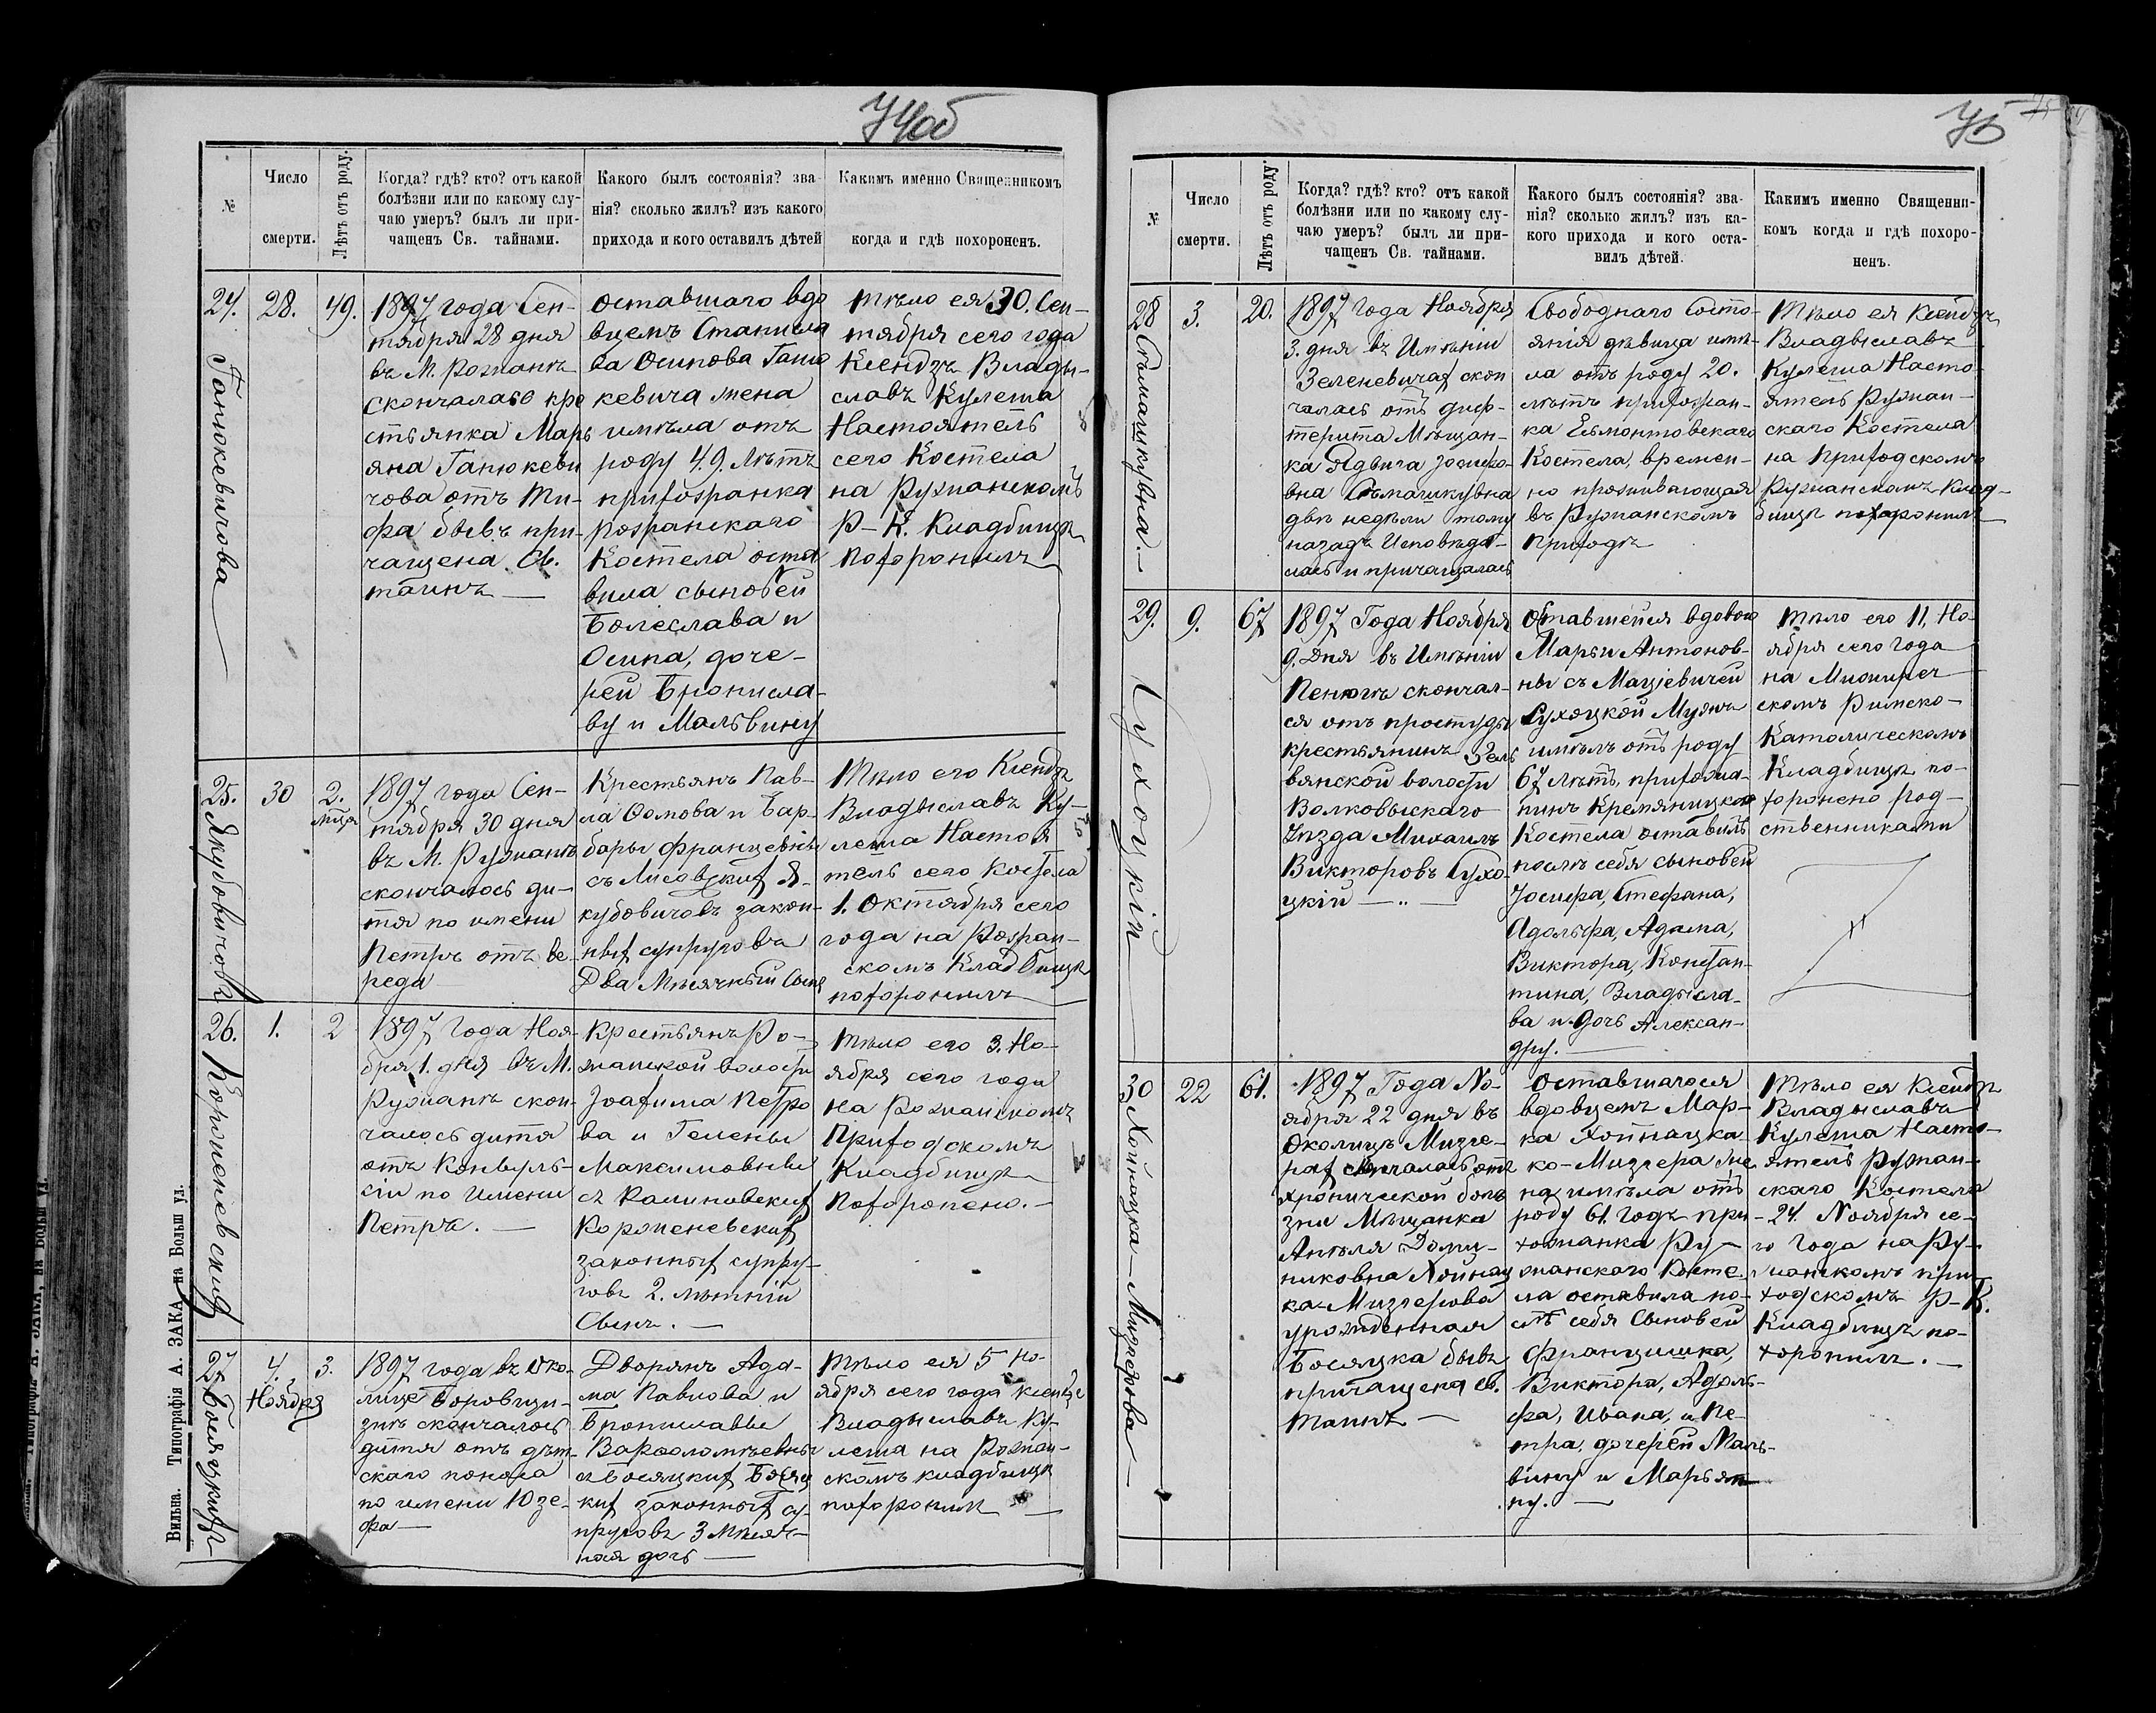 74об
№
Число
смерти.
Лѣтъ отъ роду.
Когда? гдѣ? кто? отъ какой
болѣзни или по какому слу-
чаю умеръ? былъ ли при-
чащенъ Св. тайнами.
Какого былъ состоянія? зва-
нія? сколько жилъ? изъ какого
прихода и кого оставилъ дѣтей
Какимъ именно Священникомъ
когда и гдѣ похороненъ.
24.
Ганюкевичова
28.
49.
1897 года Сен-
тября 28 дня
въ М. Рожанѣ
скончалась кре
стьянка Марь
яна Ганюкеви
чова отъ Ти-
фа бывъ при-
чащена Св.
таинъ
оставшаго вдо
вцемъ Станисла
ва Осипова Ганю
кевича жена
имѣла отъ
роду 49. лѣтъ
прихожанка
рожанскаго
Костела оста
вила сыновей
Болеслава и
Осипа, доче-
рей Брониcла-
ву и Мальвину
Тѣло ея 30. Сен-
тября сего года
Ксендзъ Влады-
славъ Кулеша
Настоятель
сего Костела
на Ружанскомъ
Р-К. Кладбищѣ
похоронилъ
25.
Якубовичовъ
30
2.
мѣца
1897 года Сен-
тября 30 дня
въ М. Ружанѣ
скончалось ди-
тя по имени
Петръ отъ ве-
реда
Крестьянъ Пав-
ла Осипова и Бар-
бары Францевны
съ Лисовскихъ Я-
кубовичовъ закон-
ныхъ супруговъ
Два Мѣсячный Сынъ
Тѣло его Ксендзъ
Владыславъ Ку-
леша Настоя
тель сего Костела
1. Октября сего
года на Рожан-
скомъ Кладбищѣ
похоронилъ
26.
Корженевскихъ
1.
2
1897 Года Ноя-
бря 1. дня въ М.
Ружанѣ скон-
чалось дитя
отъ Конвуль-
сіи по Имени
Петръ.
Крестьянъ Ро-
жанской волости
Іоахима Петро
ва и Гелены
Максимовны
съ Калиновскихъ
Корженевскихъ
законныхъ супру-
говъ 2. лѣтній
Сынъ.
Тѣло его 3. Но-
ября сего года
на Рожанскомъ
Приходскомъ
Кладбищѣ
Похоронено.
27
Босяцкихъ
4.
Ноября
3.
1897 года въ Око-
лице Боровщи-
знѣ скончалось
дитя отъ дѣт-
скаго поноса
по имени Юзе-
фа
Дворянъ Ада-
ма Павлова и
Брониславы
Варфоломѣевны
съ Босяцкихъ Босяц
кихъ законныхъ су-
пруговъ 3 Мѣсяч-
ная дочь
Тѣло ея 5 Но-
ября сего года Ксендзъ
Владыславъ Ку-
леша на Рожан-
скомъ кладбищѣ
похоронилъ
Вильна. Типографія А. ЗАКА на Больш ул.
75
№
Число
смерти.
Лѣтъ отъ роду.
Когда? гдѣ? кто? отъ какой
болѣзни или по какому слу-
чаю умеръ? былъ ли при-
чащенъ Св. тайнами.
Какого былъ состоянія? зва-
нія? сколько жилъ? изъ ка-
кого прихода и кого оста-
вилъ дѣтей.
Какимъ именно Священни-
комъ когда и гдѣ похоро-
ненъ.
28
3.
20.
1897 года Ноября
3. дня въ Имѣніи
Зеленевичахъ скон
чалась отъ диф-
терита Мѣщан-
ка Ядвига Іосифо-
вна
двѣ недѣли тому
назадъ Исповѣда-
лась и причащалась
Свободнаго Состо-
янія дѣвица имѣ-
ла отъ роду 20.
лѣтъ прихожан-
ка
Костела, времен-
но проживающая
въ Ружанскомъ
Приходѣ
Тѣло ея Ксендзъ
Владыславъ
Кулеша Насто-
ятель Ружан-
скаго Костела
на Приходскомъ
Ружанскомъ Клад-
бищѣ похоронилъ
29.
Сухоцкій
9.
67
1897 Года Ноября
9. Дня въ Имѣніи
Пенюгѣ скончал-
ся отъ простуды
крестьянинъ Зель
вянской волости
Волковыскаго
Уѣзда Михаилъ
Викторовъ Сухо-
цкій
Оставшейся вдовою
Марьи Антонов-
ны съ Мацкевичей
Сухоцкой Мужъ
имѣлъ отъ роду
67 лѣтъ, прихожа-
нинъ Кремяницкаго
Костела оставилъ
послѣ себя сыновей
Іосифа, Стефана,
Адольфа, Адама,
Виктора, Констан-
тина, Владысла-
ва и Дочь Алексан-
дру.
Тѣло его 11. Но-
ября сего года
на Мижирич
скомъ Римско-
Католическомъ
Кладбищѣ по-
хоронено род-
ственниками
30
Хойнацка-Мизгерова
22
61.
1897 Года Но-
ября 22 дня въ
Околицѣ Мизге-
рахъ скончалась отъ
хронической болѣ
зни Мѣщанка
Анѣля Доми-
никовна Хойнац
ка-Мизгерова
урожденная
Босяцка бывъ
причащена Св.
Таинъ
Оставшагося
вдовцемъ Мар-
ка Хойнацка-
ко-Мизгера же
на имѣла отъ
роду 61. годъ при
хожанка Ру-
жанскаго Косте-
ла оставила по-
слѣ себя Сыновей
Францишка,
Виктора, Адоль-
фа, Ивана, и Пе-
тра, дочерей Маль-
вину и Марьян
ну.
Тѣло ея Ксендзъ
Владыславъ
Кулеша Насто-
ятель Ружан-
скаго Костела
24 Ноября се-
го Года на Ру-
жанскомъ при
ходскомъ Р-К.
Кладбищѣ по-
хоронилъ.